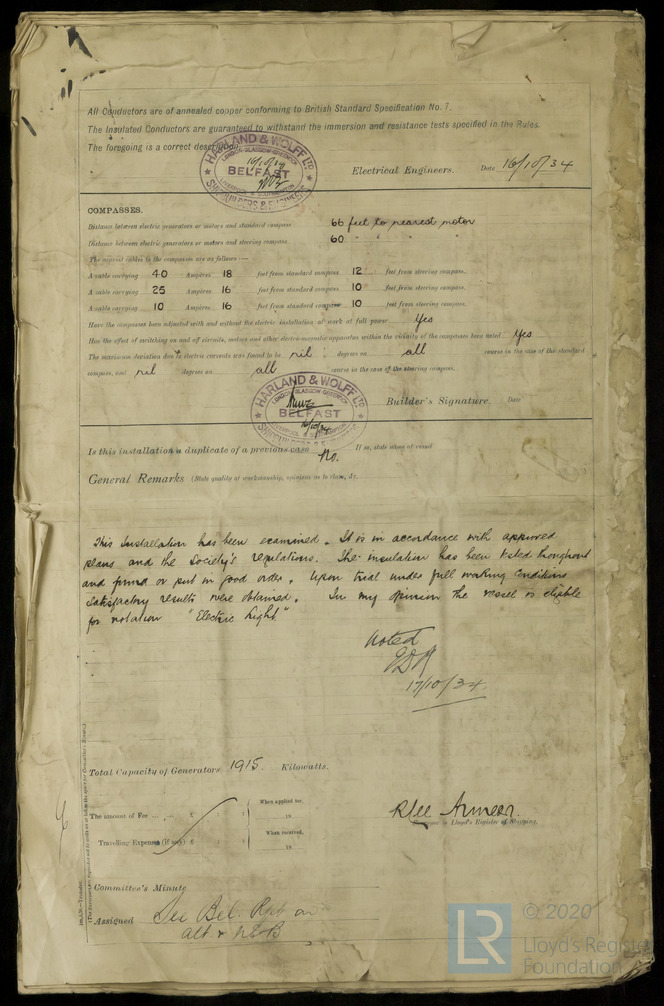 All Conductors are of annealed copper conforming to British Standard Specification No. 7.
The Insulated Conductors are guaranteed to withstand the immersion and resistance tests specified in the Rules.
The foregoing is a correct description.
HARLAND & WOLFF LTD
LONDON-GLASGOW-GREENOCK
16/10/34
BELFAST
LIVERPOOL & SOUTHAMPTON
SHIPBUILDERS & ENGINEERS
Electrical Engineers. Date 16/10/34
COMPASSES.
Distance between electric generators or motors and standard compass 66 feet to nearest motor
Distance between electric generators or motors and steering compass 60 " " " "
The nearest cables to the compasses are as follows:—
A cable carrying 40 Ampères 18 feet from standard compass 12 feet from steering compass.
A cable carrying 25 Ampères 16 feet from standard compass 10 feet from steering compass.
A cable carrying 10 Ampères 16 feet from standard compass 10 feet from steering compass.
Have the compasses been adjusted with and without the electric installation at work at full power Yes
Has the effect of switching on and off circuits, motors and other electro-magnetic apparatus within the vicinity of the compasses been noted Yes
The maximum deviation due to electric currents was found to be nil degrees on all course in the case of the standard
compass, and nil degrees on all course in the case of the steering compass.
HARLAND & WOLFF LTD
LONDON-GLASGOW-GREENOCK
BELFAST
16/10/34
LIVERPOOL &
SHIPBUILDERS &
Builder's Signature. Date
Is this installation a duplicate of a previous case No. If so, state name of vessel
General Remarks (State quality of workmanship, opinions as to class, &c.
This Installation has been examined. It is in accordance with approved
plans and the Society's regulations. The insulation has been tested throughout
and found or put in good order. Upon trial under full working conditions
satisfactory results were obtained. In my opinion the vessel is eligible
for notation "Electric Light"
Noted
17/10/34
Total Capacity of Generators 1915. Kilowatts.
The amount of Fee ... £ : : When applied for,
19
Travelling Expenses (if any) £ : : When received,
19
Surveyor to Lloyd's Register of Shipping.
Committee's Minute
Assigned See Bel. Rpt on
© 2020
LR
Lloyd's Register
Foundation